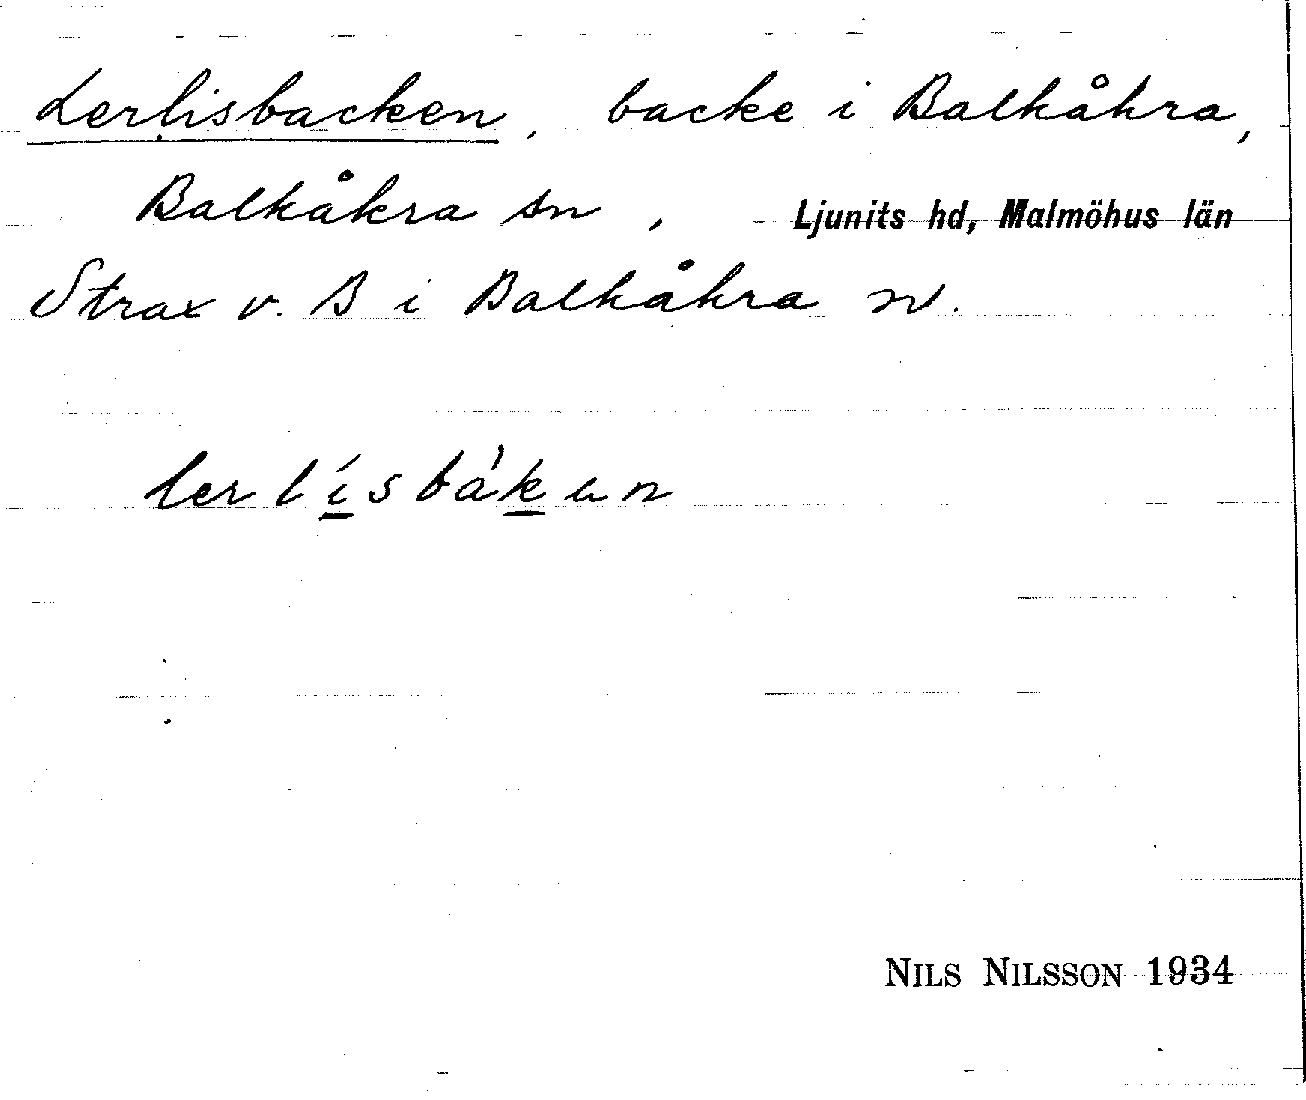 Lerlisbacken, backe i Balkåkra,
Balkåkra sn, Ljunits hd, Malmöhus län
Strax v. B i Balkåkra
lerlísbák
NILS NILSSON 1934